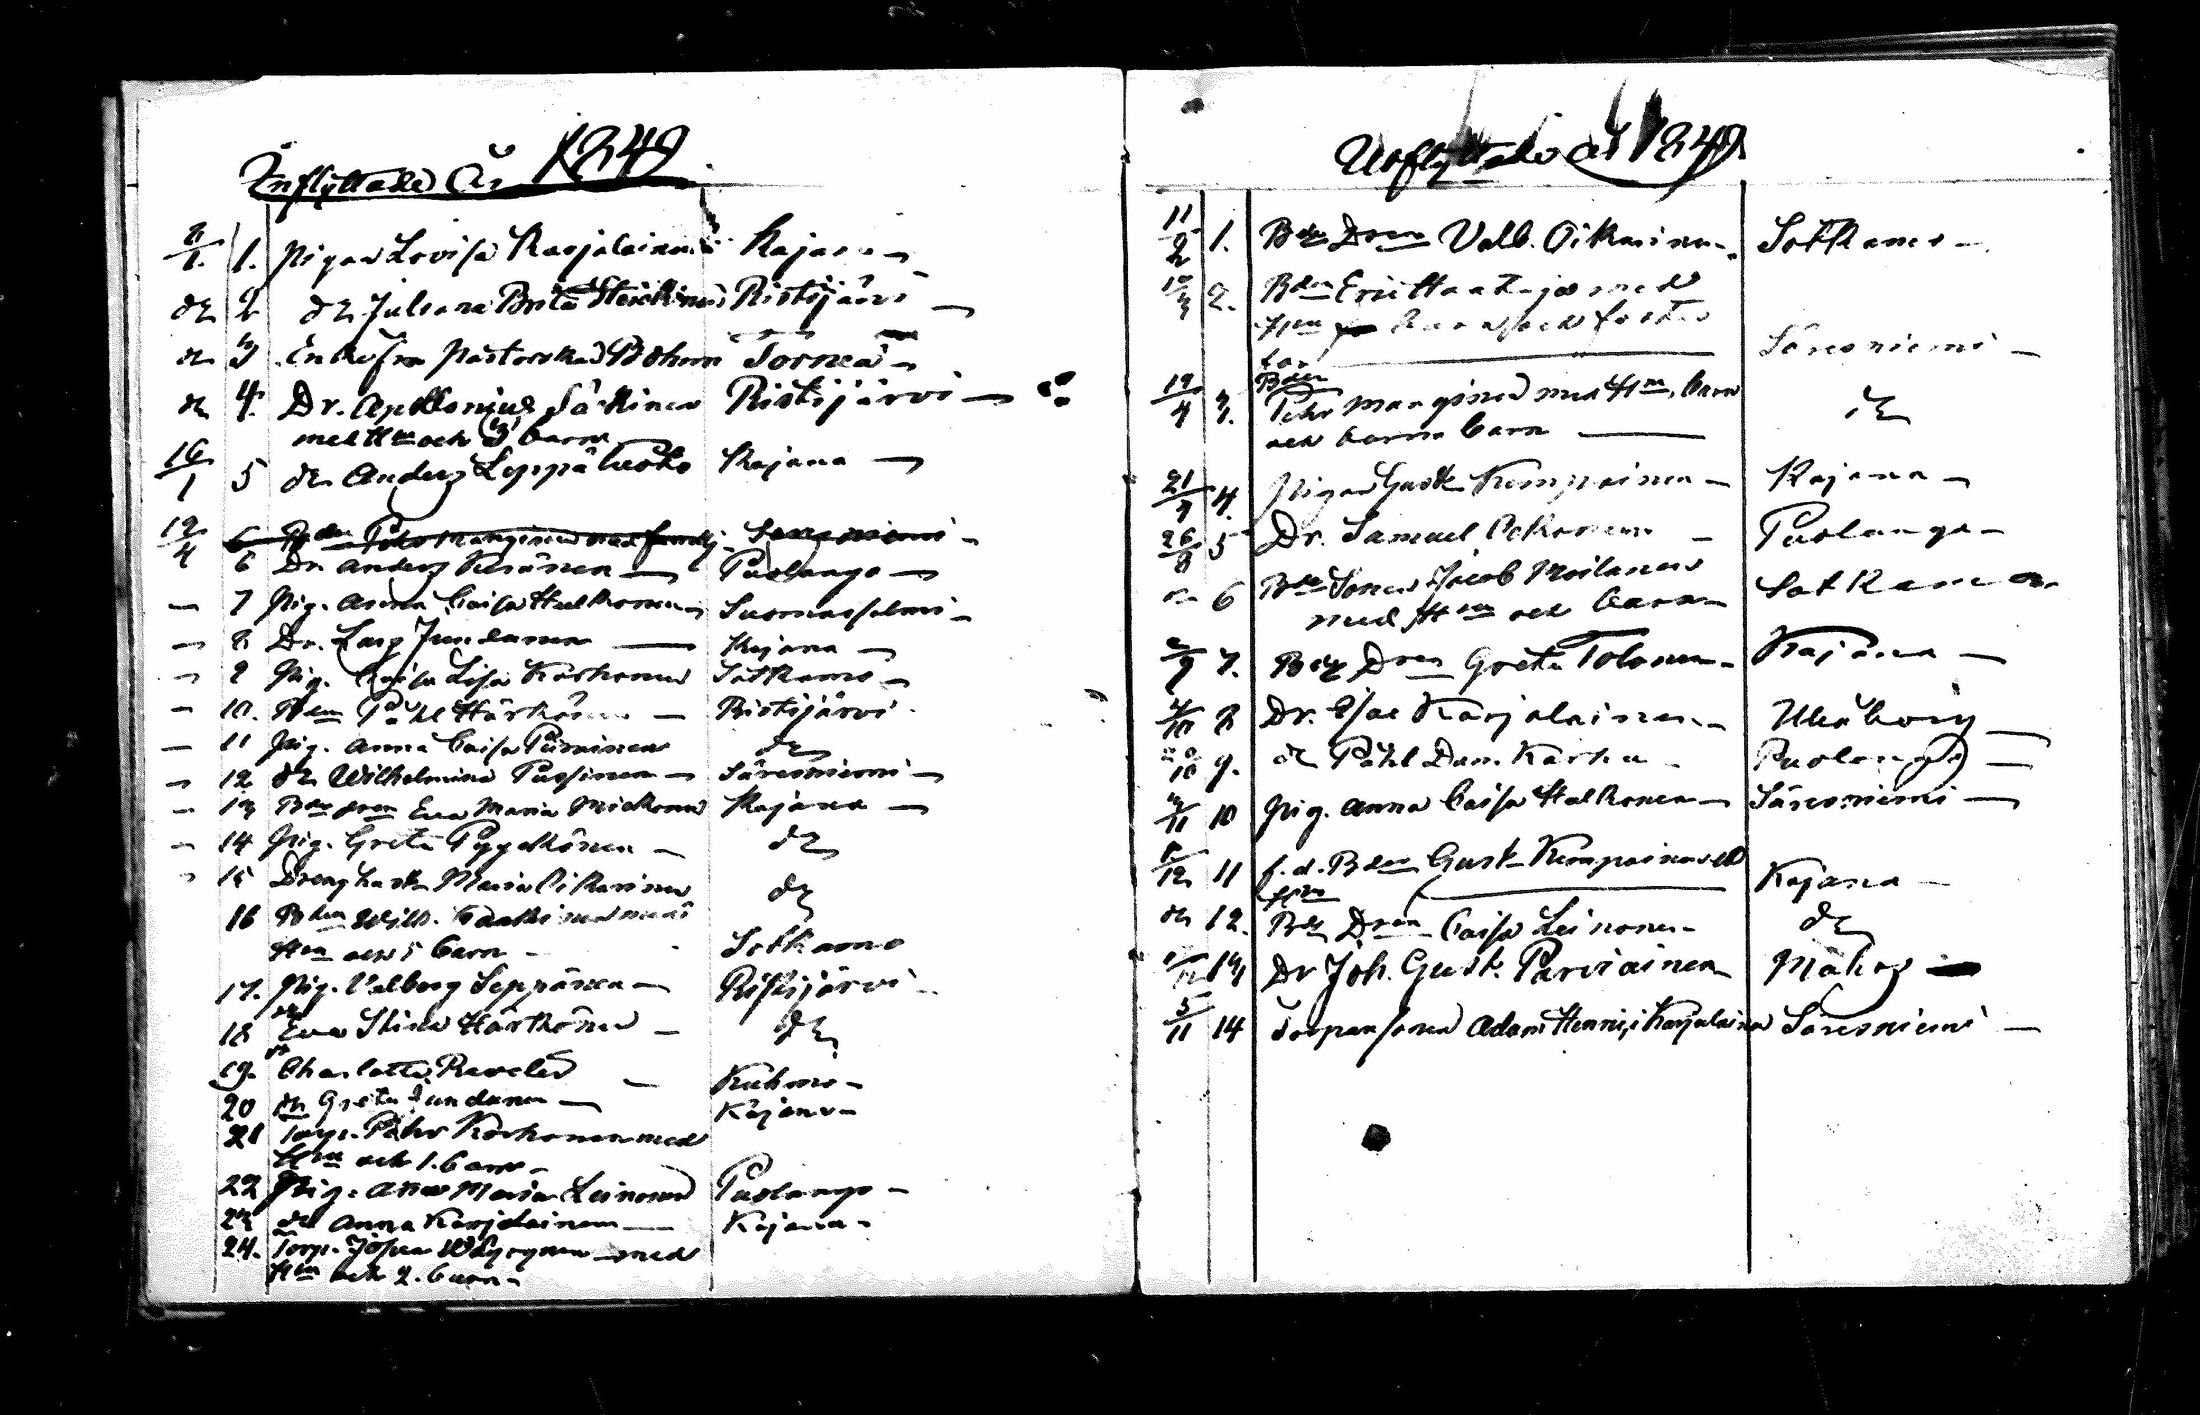 Inflyttade År 1849
8/1. 1. Pigan Lovisa Karjalainen Kajana
dr 2 dr Juliana Brita Heickinen Ristijärvi
dr 3 Enkefru Pastorskan Bohm Torneå
dr 4. Dr. Apollonius Säkkinen Ristijärvi
med Hu och 3 barn
16/1 5 dr Anders Leppäluoto Kajana
19/4 6 Bden Pehr Manginen med familj Säresniemi
6 Dr. Anders Keränen Puolango
7 Pig. Anna Caisa Halkonen Suomussalmi
8 Dr. Lars Jundunen Kajana
9 Pig. Caisa Lisa Korhonen Sotkamo
10. Bden Påhl Härkönen Ristijärvi
11 Pig. Anna Caisa Piirainen dr
12 dr Wilhelmina Pussinen Säresniemi
13 Bde Dren Eva Maria Mickonen Kajana
14 Pig. Greta Pyykönen dr
15 Dreng hustr. Maria Oikarinen dr
16 Bden Wilh. med
Hu och 5 barn Sotkamo
17. Pig. Valborg Seppänen Ristijärvi
18 dr Eva Stina Härkönen dr
19. dr Charlotta Kuhmo
20 dr Greta Jundunen Kajana
21 Torp. Påhr Korhonen med
Hu och 1. barn
22 Pig. Anna Maria Leinonen Puolango
23 dr Anna Karjalainen Kajana
24. Torp. Johan Wäyrynen med
Hu och 2. barn
Utflyttade År 1849
11/2 1. Bde Dren Valb. Oikarinen Sotkamo
10/3 2. Bden Eric Haataja med
Hu barn och foster
Säresniemi
19/4 3. Bden Pehr Manginen med Hu, barn dr
och barna barn
21/7 4. Pigan Gust. Kemppainen Kajana
26/8 5 Dr. Samuel Ockonen Puolango
dr 6 Bde Sonen Jacob Moilanen Sotkamo
med Hu och barn
2/9 7. Bde Dren Greta Tolonen Kajana
4/10 8 Dr. Isac Karjalainen Uleåborg
20/10 9. dr Påhl Dan. Karhu Puolango
4/11 10 Pig. Anna Caisa Halkonen Säresniemi
8/12 11 f.d. Bden Gust. Kemppainen
Hu Kajana
dr 12. Bde Dren Caisa Leinonen dr
13 Dr Joh. Gust. Parviainen Muhos
5/11 14 Torparsonen Adam Henric Karjalainen Säresniemi